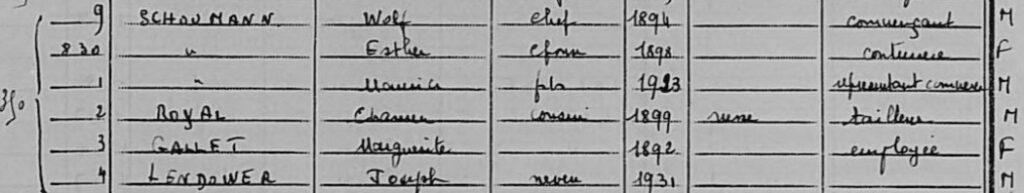 9 SCHOUMANN Wolf chef 1894 commerçant M
830 " Esther épouse 1898 couturiere F
1 " Maurice fils 1923 représentant commerce M
350
2 ROYAL cousin 1899 russe tailleur M
3 GALLET Marguerite 1892 employée F
4 LENDOWER Joseph neveu 1931 M